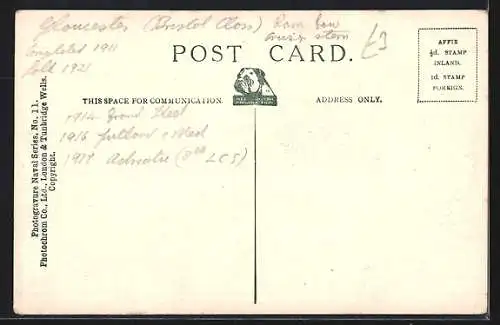 Gloucester (Bristol Class) Ram bow
cruiser stern
Completed 1911
Sold 1921
£3
POST CARD.
AFFIX
½d. STAMP
INLAND.
1d. STAMP
FOREIGN.
THIS SPACE FOR COMMUNICATION.
ADDRESS ONLY.
1914 Grand Fleet
1916 Jutland & Med
1917 Adriatic (8th LCS)
Photogravure Naval Series, No. 11.
Photochrom Co., Ltd., London & Tunbridge Wells.
Copyright.